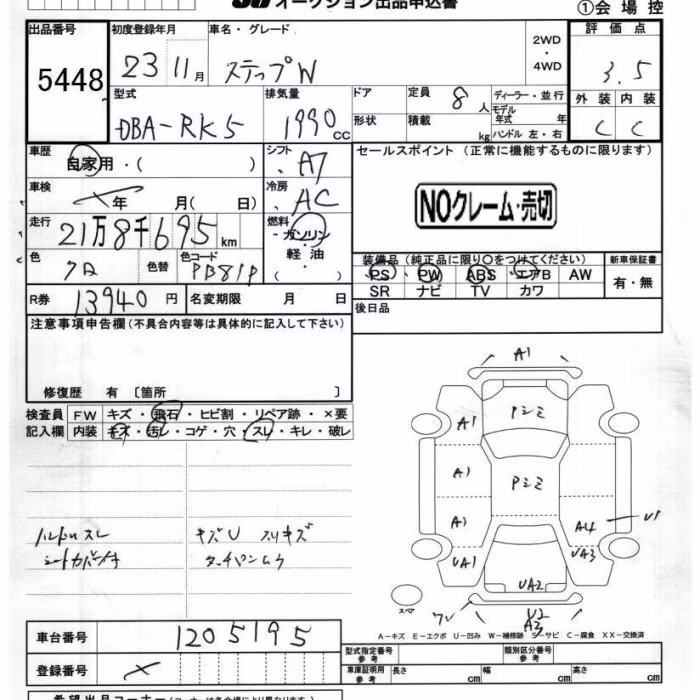 オークション出品申込書
①会場控
出品番号
5448
初度登録年月
23 11月
車名・グレード
ステップW
2WD
・
4WD
評価点
3.5
型式
DBA-RK5
排気量
1990cc
ドア
定員 8人
形状
積載 kg
ディーラー・並行
モデル年式 年
ハンドル 左・右
外装 内装
C C
車歴
自家用・( )
シフト
AT
セールスポイント (正常に機能するものに限ります)
NOクレーム・売切
車検
年 月( 日)
冷房
AC
走行
21万8千695km
燃料
ガソリン・
軽油・
( )
色
クロ
色替
色コード
PB81P
装備品 (純正品に限り○をつけてください)
新車保証書
PS PW ABS エアB AW
SR ナビ TV カワ
有・無
R券
13940円
名変期限 月 日
後日品
注意事項申告欄(不具合内容等は具体的に記入して下さい)
修復歴 有 〔箇所 〕
検査員記入欄
FW キズ・飛石・ヒビ割・リペア跡・×要
内装 キズ・汚レ・コゲ・穴・スレ・キレ・破レ
ハンドルスレ キズU スリキズ
A1
A1
A1
UA1
A4
UA3
UA2
U2
A3
スペア
A-キズ E-エクボ U-凹み W-補修跡 S-サビ C-腐食 XX-交換済
車台番号
1205195
登録番号
×
型式指定番号 参考
類別区分番号 参考
車庫証明用 参考
長さ cm
幅 cm
高さ cm
希望出品コーナー